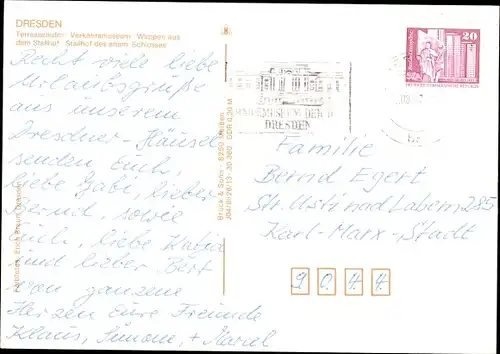 DRESDEN
Terrassenufer Verkehrsmuseum Wappen aus
dem Stallhof Stallhof des ehem. Schlosses
Recht viele liebe
Urlaubsgrüße
aus unserem
Dresdner-Häusel
senden Euch,
liebe Gabi, lieber
Bernd, sowie
Euch, liebe Katja
und lieber Bert
von ganzem
Herzen Eure Freunde
Klaus, Simone, + Marcel
Brück & Sohn · 8250 Meißen
DDR 0,20 M
DER
DRESDEN
20
Familie
Bernd Egert
Str. Usti nad Labem 285
Karl-Marx-Stadt
9 0 4 4